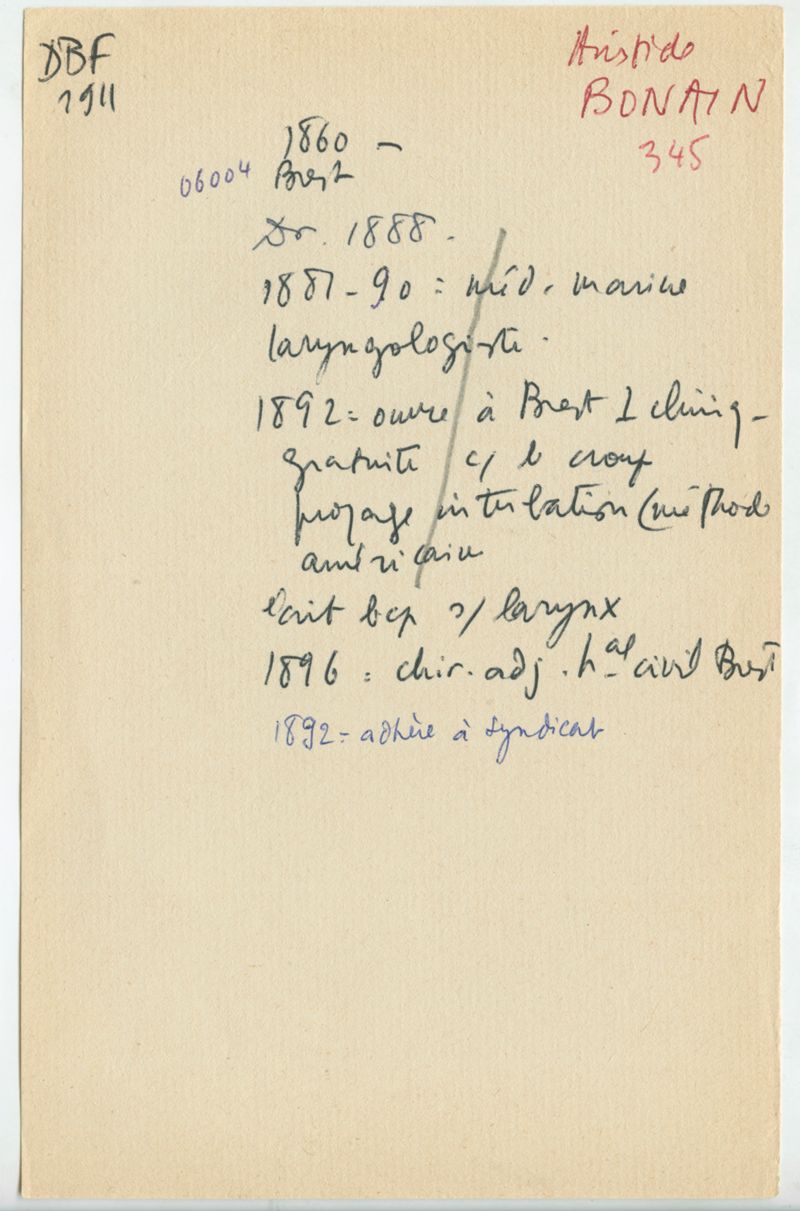 DBF
1911
Aristide
BONAIN
345
1860 -
06004 Brest
Dr. 1888 -
1881 - 90 = méd. marine
laryngologiste.
1892 = ouvre à Brest 1 cliniq-
gratuite c/ le croup
propage intubation (méthode
américaine
écrit bcp s/ larynx
1896 = chir. adj. hal civil Brest
1892 = adhère à syndicat